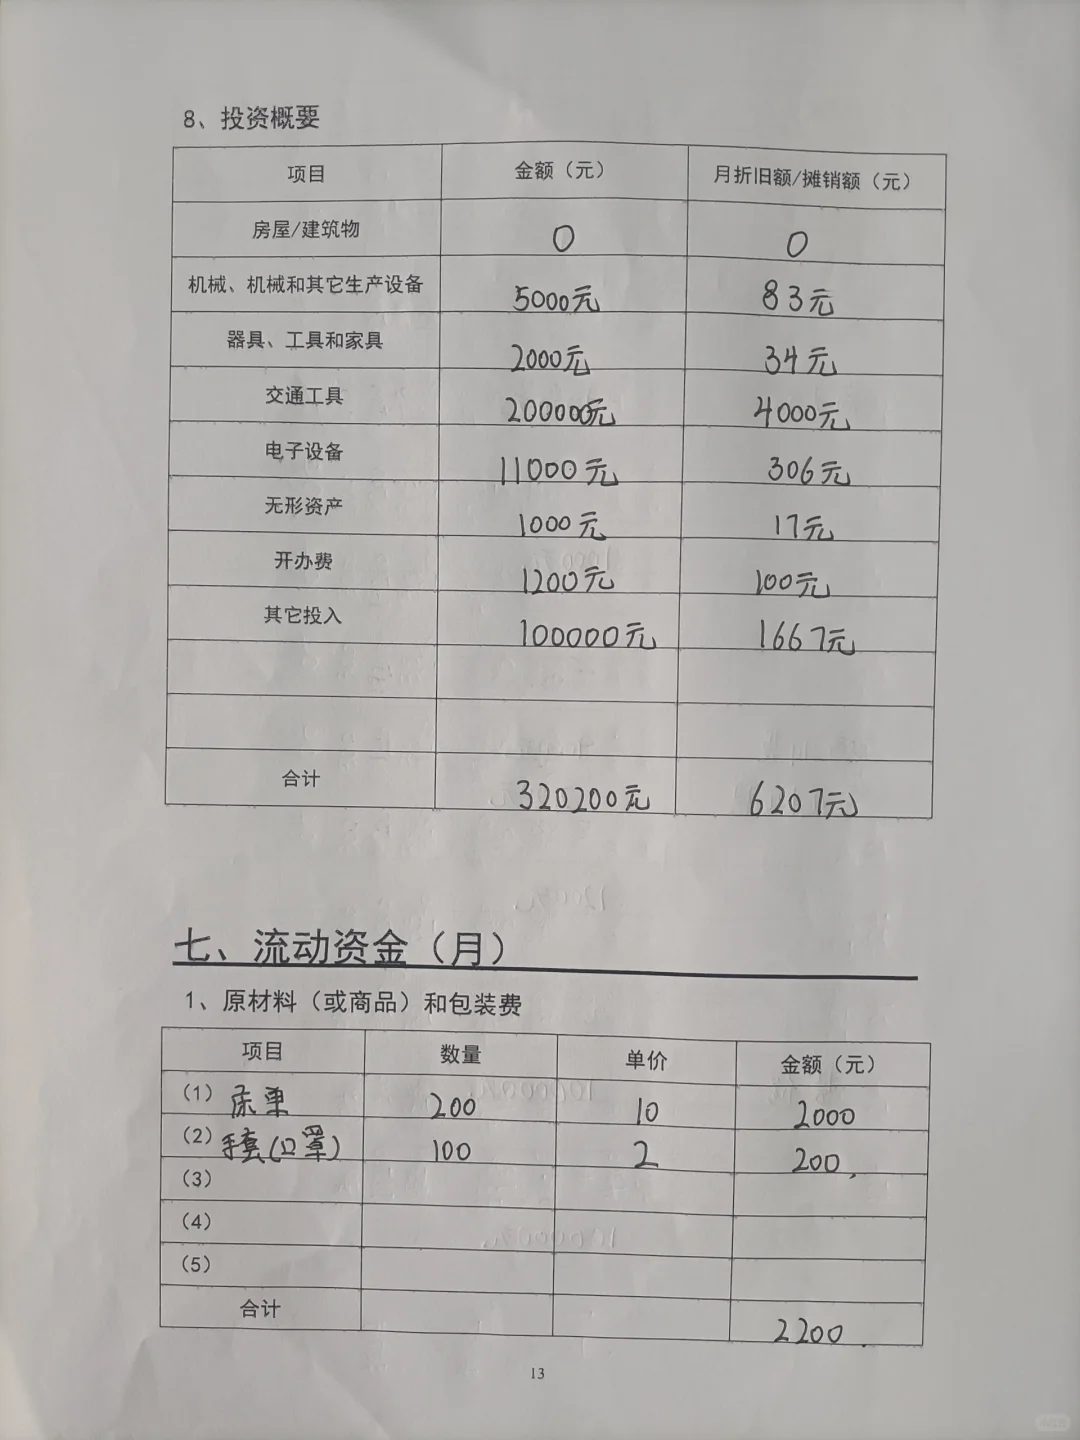 8、投资概要
项目 金额（元） 月折旧额/摊销额（元）
房屋/建筑物 0 0
机械、机械和其它生产设备 5000元 83元
器具、工具和家具 2000元 34元
交通工具 200000元 4000元
电子设备 11000元 306元
无形资产 1000元 17元
开办费 1200元 100元
其它投入 100000元 1667元
合计 320200元 6207元
七、流动资金（月）
1、原材料（或商品）和包装费
项目 数量 单价 金额（元）
（1） 床单 200 10 2000
（2）手套(口罩) 100 2 200
（3）
（4）
（5）
合计 2200
13